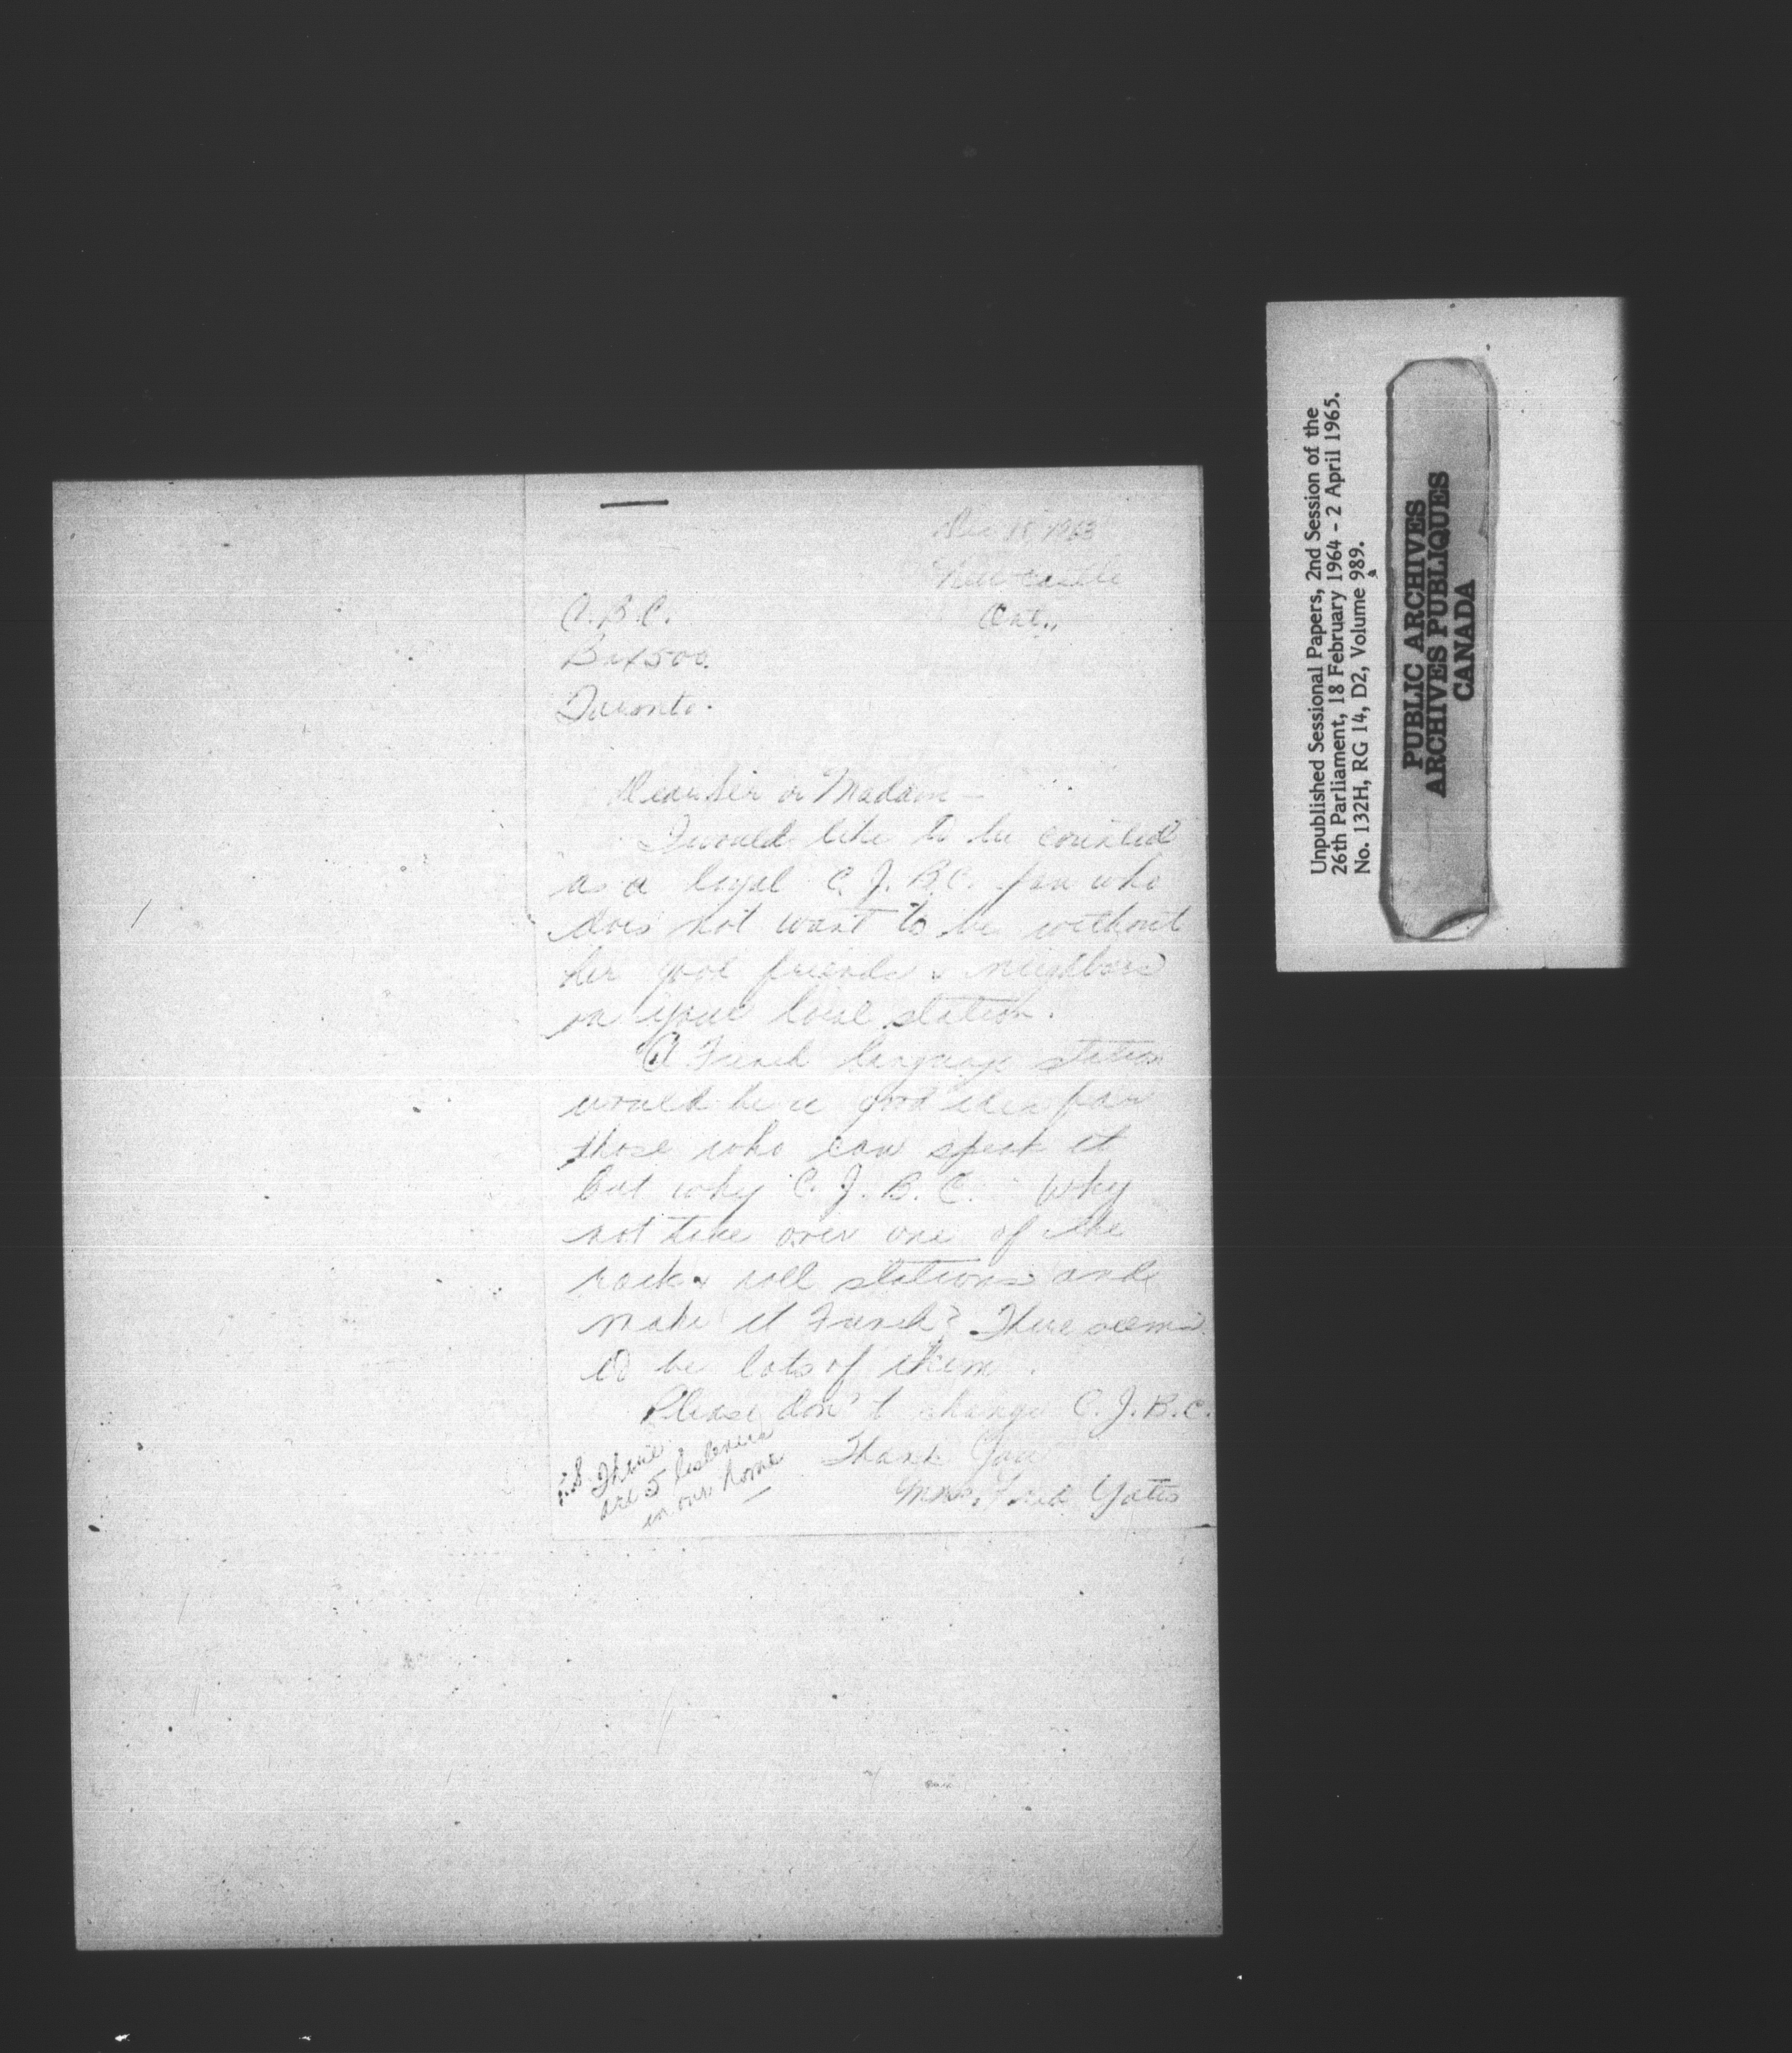 Dec 18, 1963
Newcastle
Ont.,
C.B.C.
Box 500.
Toronto.
Dear Sir or Madam—
I would like to be counted
as a loyal C.J.B.C. fan who
does not want to be without
her good friends & neighbors
on your local station.
A French language station
would be a good idea for
those who can speak it
but why C.J.B.C. Why
not take over one of the
rock & roll stations and
make it French? There seems
to be lots of them.
Please don't change C.J.B.C.
Thank You
Mrs. Fred Yates
P.S. There
are 5 listeners
in our home
Unpublished Sessional Papers, 2nd Session of the
26th Parliament, 18 February 1964 - 2 April 1965.
No. 132H, RG 14, D2, Volume 989.
PUBLIC ARCHIVES
ARCHIVES PUBLIQUES
CANADA